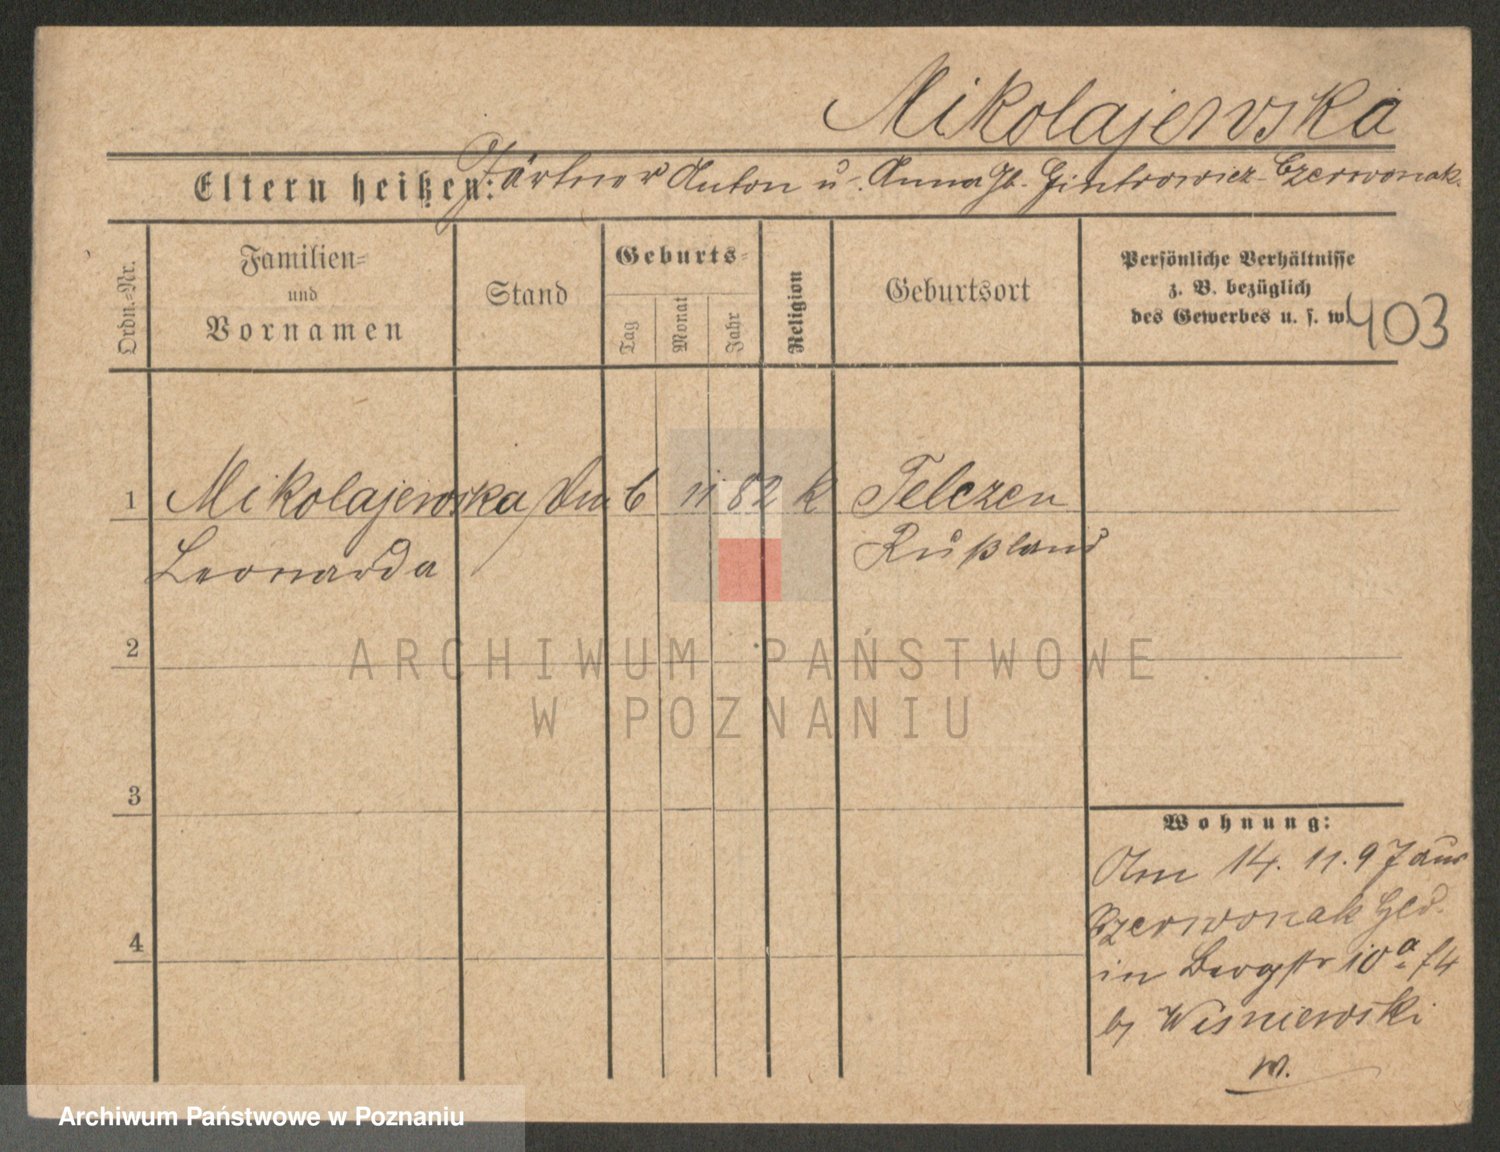 Mikolajewska
Eltern heißen: Gärtner Anton u. Anna gb. Gintrowicz - Czerwonak.
Ordn.-Nr.
Familien- und Vornamen
Stand
Geburts-
Tag
Monat
Jahr
Religion
Geburtsort
Persönliche Verhältnisse
z. B. bezüglich
des Gewerbes u. s. w.
403
1 Mikolajewska 6 11 82 k Telczen
Leonarda Rußland
2
ARCHIWUM PAŃSTWOWE
W POZNANIU
3
Wohnung:
Am 14. 11. 97 aus
Czerwonak
4
in Bergstr 10a
b/ Wisniewski
Archiwum Państwowe w Poznaniu